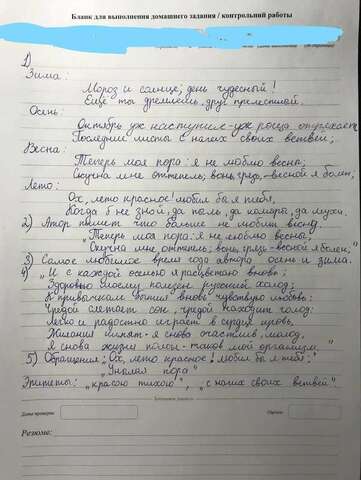 Бланк для выполнения домашнего задания / контрольной работы
1)
Зима:
Мороз и солнце; день чудесный!
Еще ты дремлешь, друг прелестной.
Осень:
Октябрь уж наступил - уж роща отряхает
Последние листы с нагих своих ветвей;
Весна:
Теперь моя пора: я не люблю весны;
Скучна мне оттепель; вонь, грязь - весной я болен;
Лето:
Ох, лето красное! любил бы я тебя,
Когда б не зной, да пыль, да комары, да мухи.
2) Атор пишет что больше не любит весну.
„Теперь моя пора: я не люблю весны;
Скучна мне оттепель; вонь, грязь - весной я болен;"
3) Самое любимое время года автора осень и зима.
4) „И с каждой осенью я расцветаю вновь;
Здоровью моему полезен русский холод;
К привычкам бытия вновь чувствую любовь:
Чредой слетает сон, чредой находит голод:
Легко и радостно играет в сердце кровь,
Желания кипят - я снова счастлив, молод,
Я снова жизни полон - таков мой организм."
5) Обращения: „Ох, лето красное! любил бы я тебя;"
„Унылая пора"
Эпитеты: „красою тихою", „с нагих своих ветвей".
Дата проверки
Оценка
Резюме: